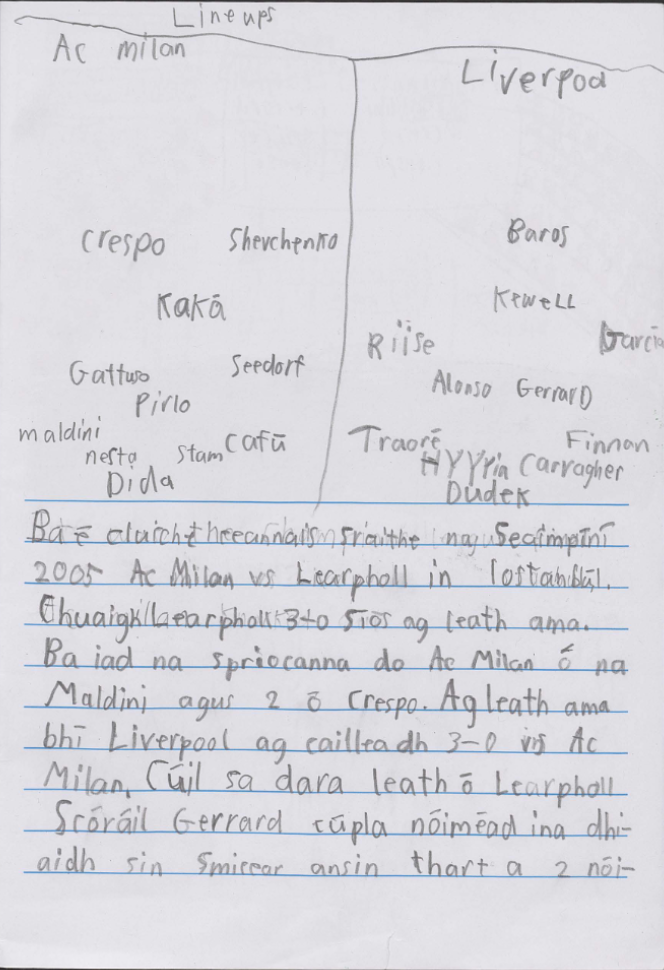 Lineups
Ac milan
Liverpool
Crespo Shevchenko
Baros
Kaká
Kewell
Riise Garcia
Gattuso Seedorf
Pirlo
Alonso Gerrard
maldini nesta Stam Cafú
Traoré Hyypia Carragher Finnan
Dida
Dudek
Ba é cluiche
2005 Ac Milan vs Learpholl in Iostanbúl.
Chuaigh Learpholl 3-0 síos ag leath ama.
Ba iad na spriocanna do Ac Milan ó na
Maldini agus 2 ó Crespo. Ag leath ama
bhí Liverpool ag cailleadh 3-0 vs Ac
Milan. Cúil sa dara leath ó Learpholl
Scóráil Gerrard cúpla nóiméad ina dhi-
aidh sin Smicer ansin thart a 2 nói-